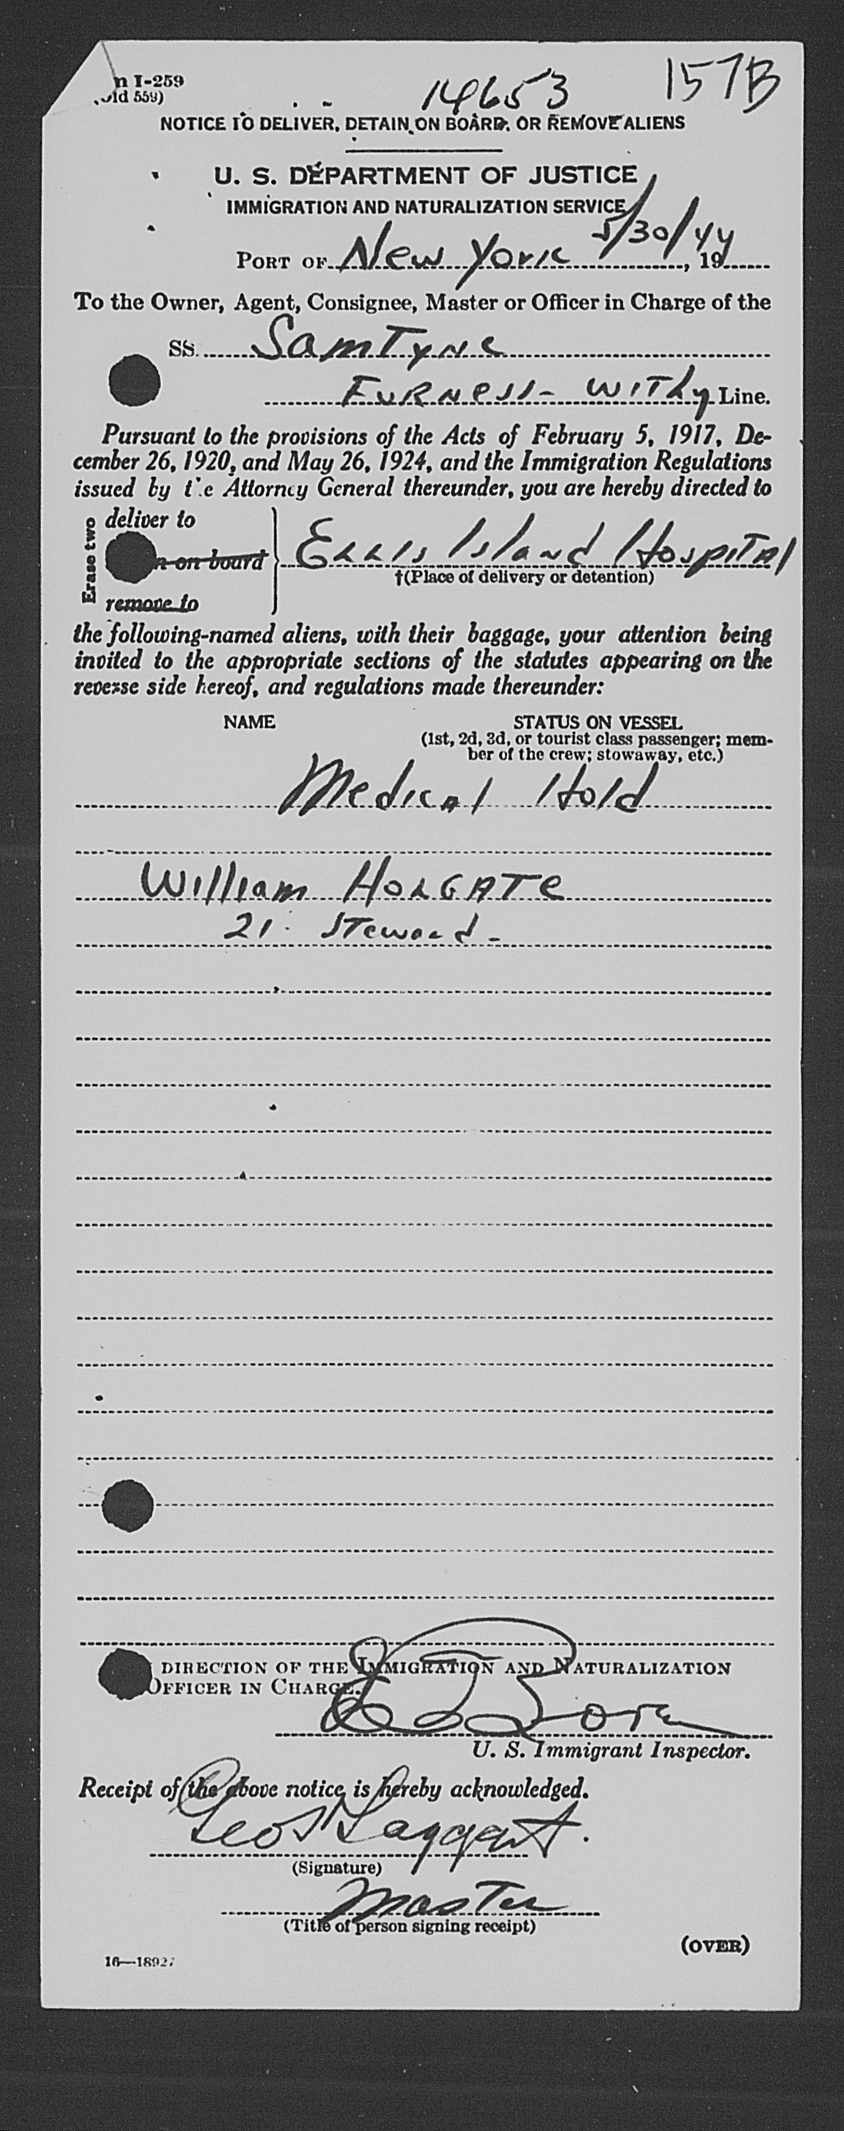 I-259
559)
14653
157B
NOTICE TO DELIVER, DETAIN ON BOARD, OR REMOVE ALIENS
U. S. DEPARTMENT OF JUSTICE
IMMIGRATION AND NATURALIZATION SERVICE
PORT OF New York 5/30/44, 19
To the Owner, Agent, Consignee, Master or Officer in Charge of the
SS. SamTyne
Furness-Withy Line.
Pursuant to the provisions of the Acts of February 5, 1917, De-
cember 26, 1920, and May 26, 1924, and the Immigration Regulations
issued by the Attorney General thereunder, you are hereby directed to
Erase two
deliver to
on board
remove to
Ellis Island Hospital
†(Place of delivery or detention)
the following-named aliens, with their baggage, your attention being
invited to the appropriate sections of the statutes appearing on the
reverse side hereof, and regulations made thereunder:
NAME STATUS ON VESSEL
(1st, 2d, 3d, or tourist class passenger; mem-
ber of the crew; stowaway, etc.)
Medical Hold
William Holgate
21. Steward-
DIRECTION OF THE IMMIGRATION AND NATURALIZATION
OFFICER IN CHARGE.
U. S. Immigrant Inspector.
Receipt of the above notice is hereby acknowledged.
(Signature)
Master
(Title of person signing receipt)
(OVER)